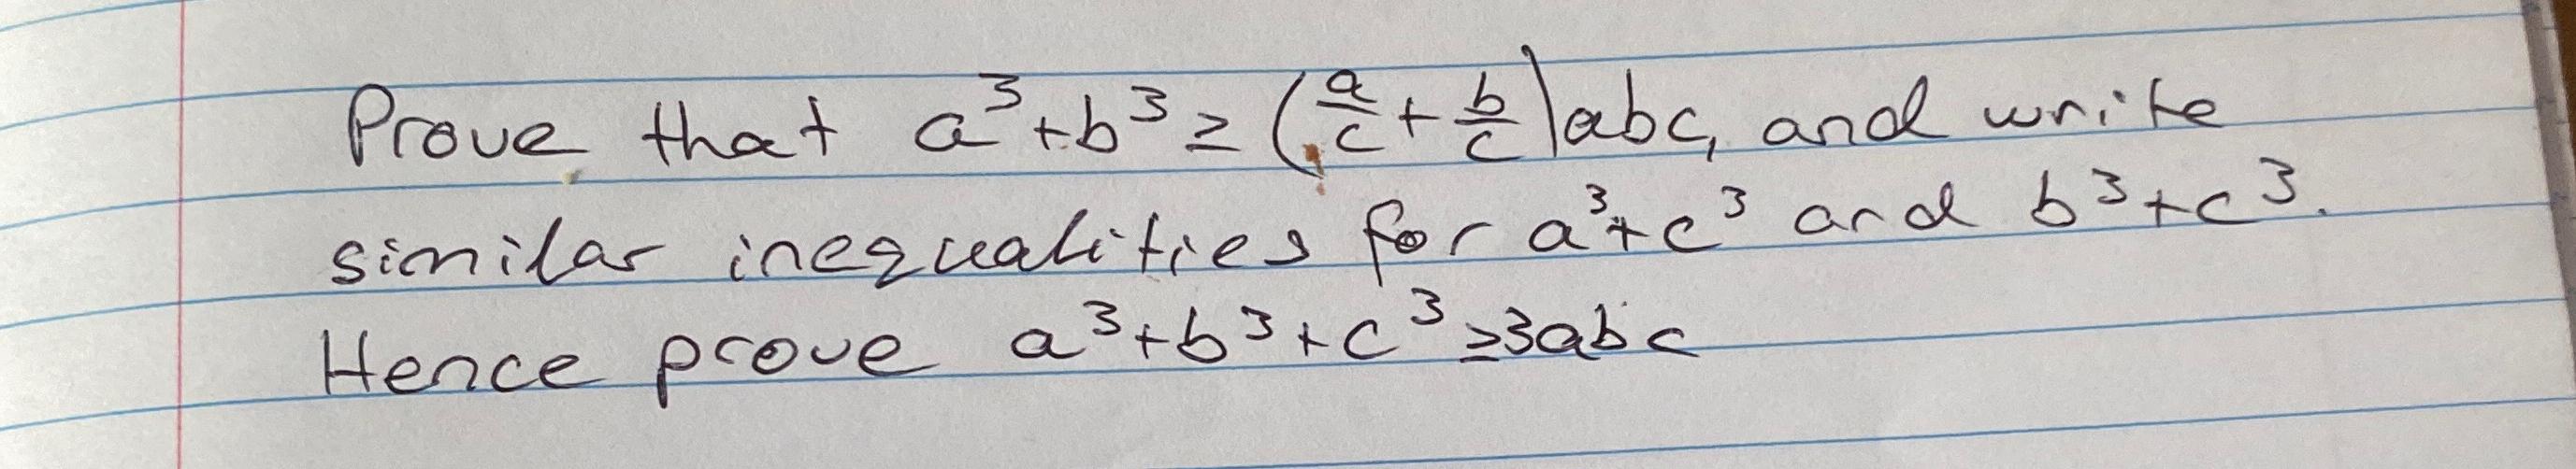 Prove that a³+b³ ≥ (a/c + b/c)abc, and write
similar inequalities for a³+c³ and b³+c³.
Hence prove a³+b³+c³ ≥3abc